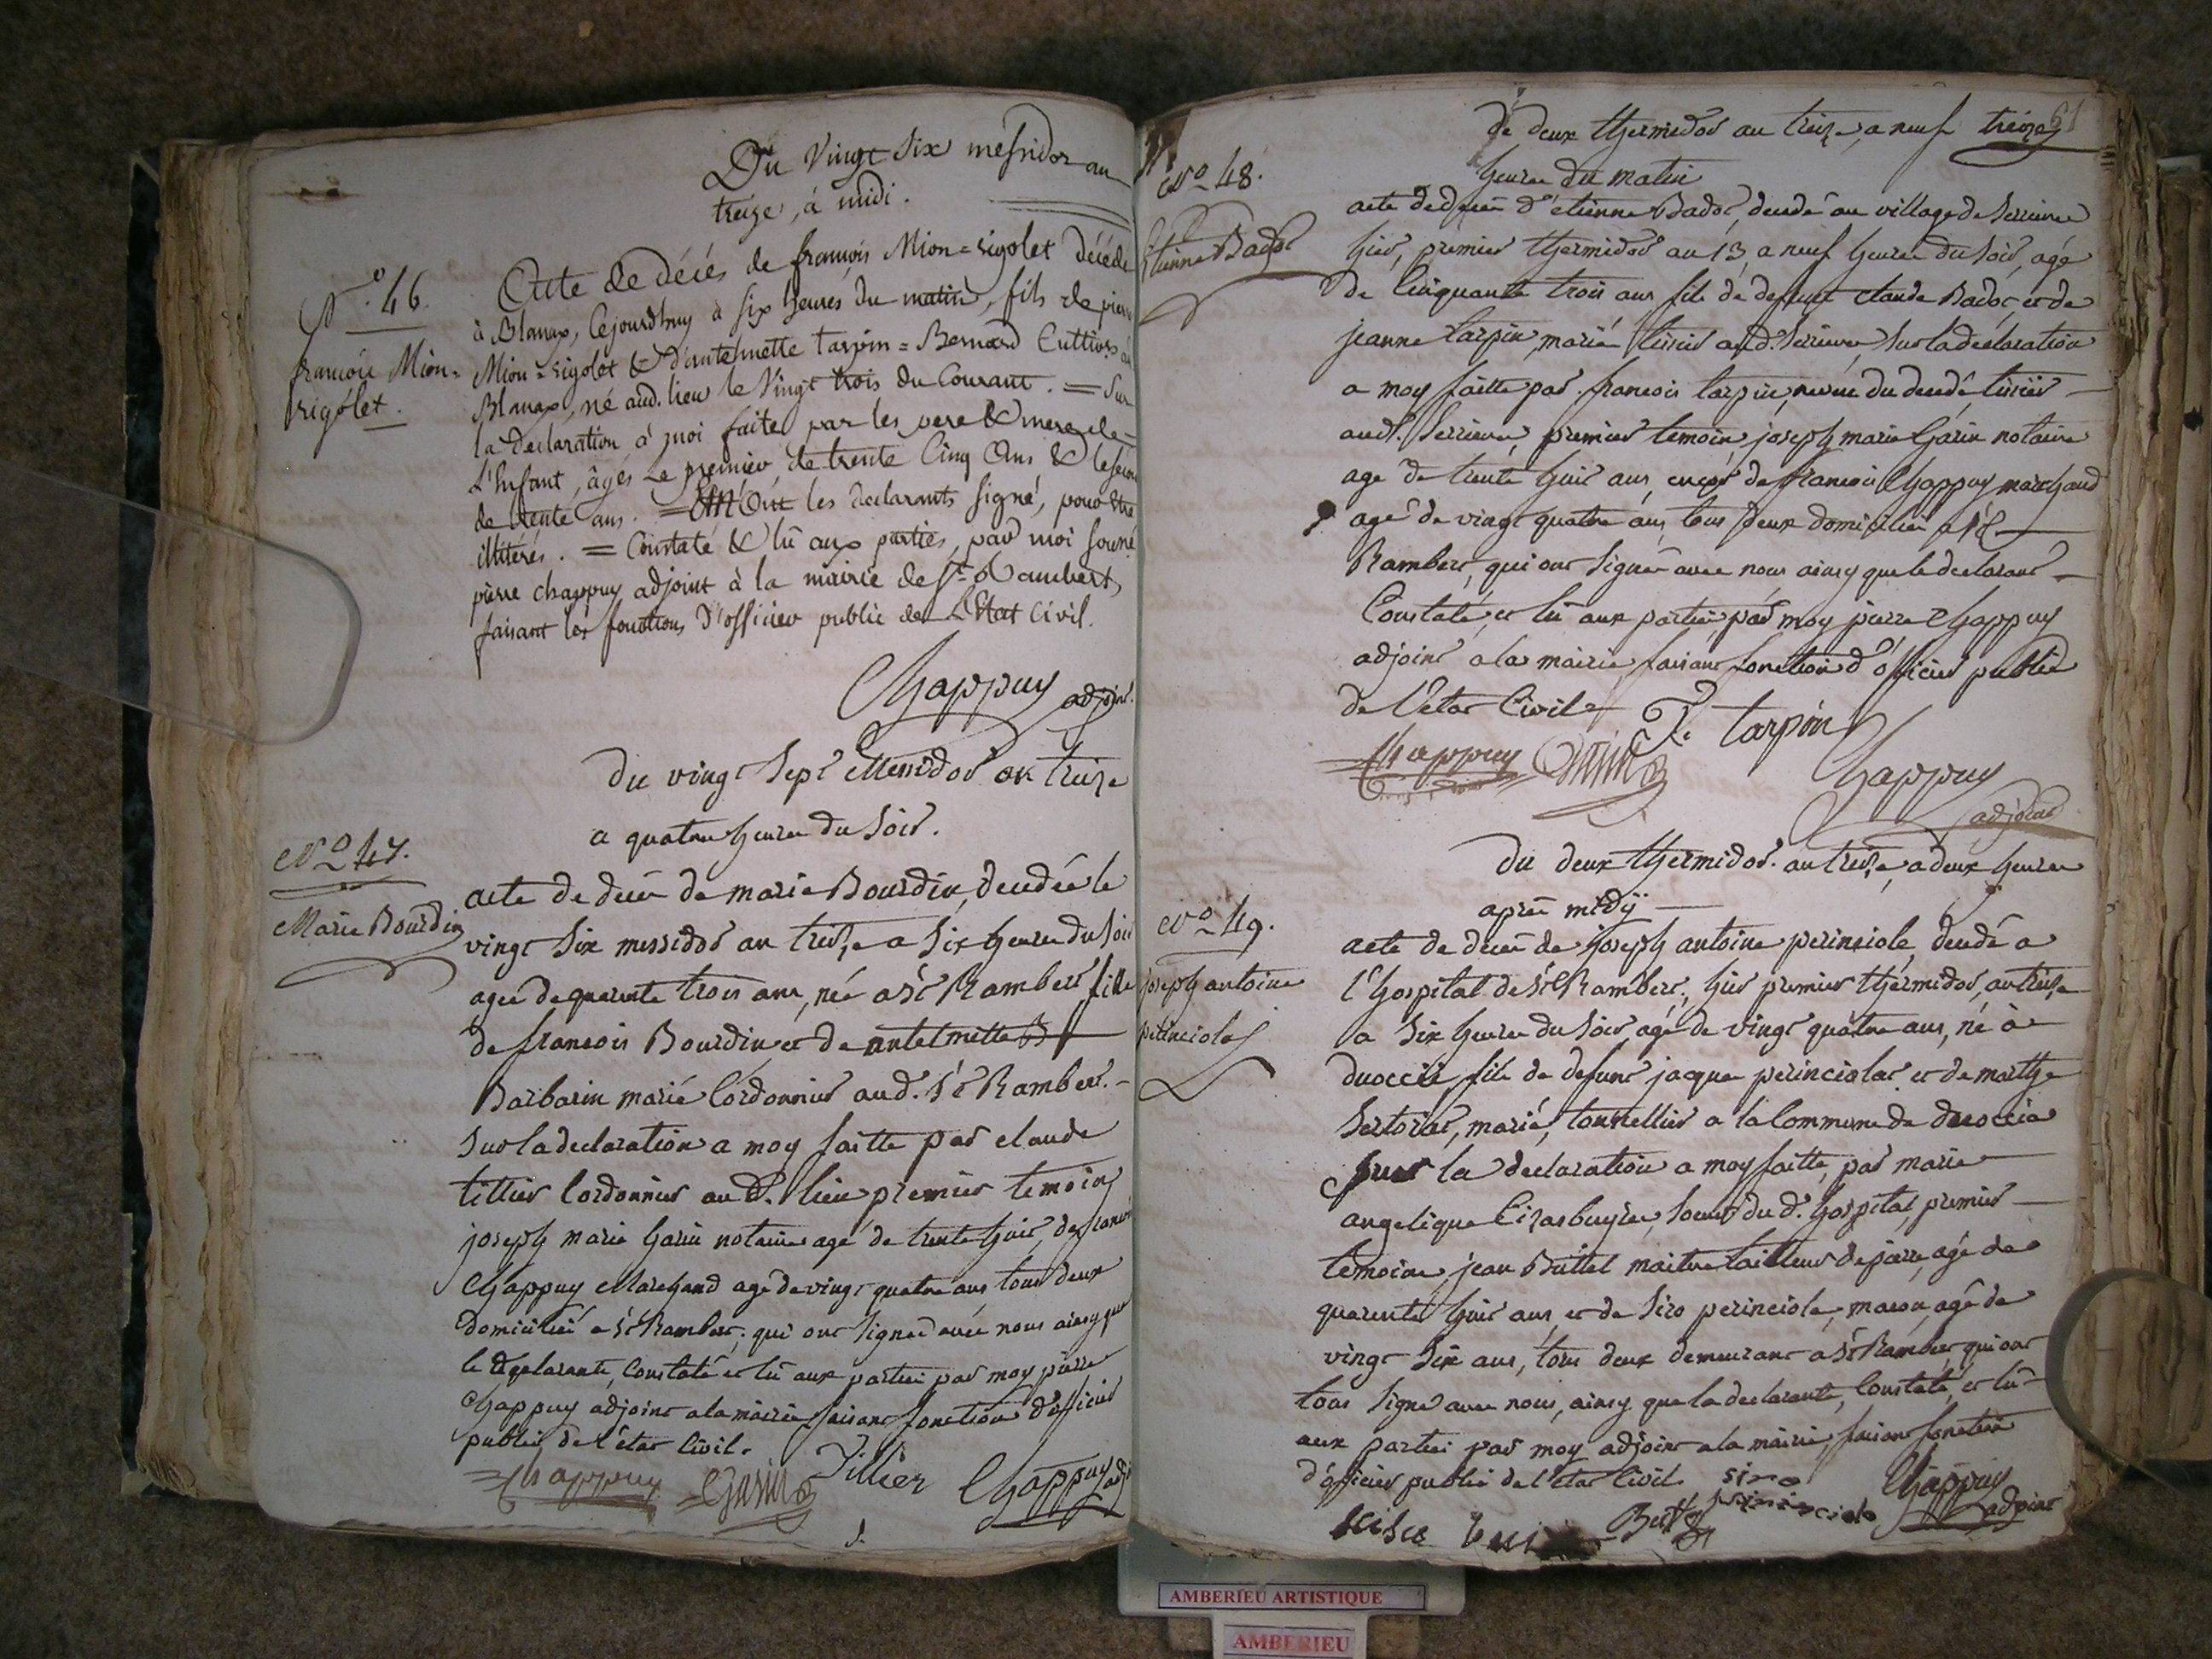 Du Vingt Six messidor an
treize, à midi.
N.º 46.
francois Mion=
rigolet.
Acte de décés de francois Mion=rigolet décédé
à Blanaz, Cejourdhuy à six heures du matin, fils de pierre
Mion=rigolet & d'antelmette tarpin=Bernard Cultivrs au
Blanaz, né aud. lieu le Vingt trois du Courant. = Sur
la declaration à moi faite par les pere & mere de
L'Enfant, âgés Le premier de trente Cinq Ans & le second
de trente ans. = Ont les declarants signé, pour être
illitérés. = Constaté & lû aux parties, par moi soussigné
pierre chappuy adjoint à la mairie de St. Rambert,
faisant les fonctions d'officier public de L'Etat Civil.
Chappuy adjoint.
du vingt Sept Messidor an treize
a quatre heures du Soir.
No 47.
Marie Bourdin
acte de deces de marie Bourdin, decedée le
vingt Six messidor an treize a Six heures du Soir
agee de quarente trois ans, née a St Rambert fille
de francois Bourdin et de antelmette B
Barbarin marié Cordonnier aud. St Rambert.
Sur la declaration a moy faitte par claude
tillier Cordonnier aud. lieu premier temoin
joseph marie Garin notaire age de trente huit, de francois
Chappuy Marchand agé de vingt quatre ans tous deux
domiciliés a St Rambert, qui ont Signé avec nous ainsy que
le declarante, Constaté et lû aux parties par moy pierre
Chappuy adjoint a la mairie faisant fonction d'officier
public de l'état Civil.
Chappuy Garin Tillier Chappuy adj
61
de deux thermidor an treize, a neuf treize
heures du matin
No 48.
Etienne Badoc
acte de deces d'etienne Badoc, decedé au village de Serrieres
hier, premier thermidor an 13, a neuf heures du Soir, agé
de Cinquante trois ans fils de defunt claude Badoc et de
jeanne tarpin, marié aud. Serrieres, Sur la declaration
a moy faitte par francois tarpin, neveu du decedé,
aud. Serrieres, premier temoin joseph marie Garin notaire
age de trente huit ans, encor de francois Chappuy marchand
agé de vingt quatre ans, tous deux domiciliés a St
Rambert, qui ont Signés avec nous ainsy que le declarant
Constaté, et lû aux parties, par moy pierre Chappuy
adjoint a la mairie, faisant fonction d'officier public
de l'état Civil
Chappuy Garin F. tarpin
Chappuy
adjoint
du deux thermidor an treize, a deux heures
apres midy
No 49.
joseph antoine
perinciole
acte de deces de joseph antoine perinciole decedé a
l'hospital de St Rambert, hier premier thermidor, an treize
a Six heures du Soir, agé de vingt quatre ans, né à
duoccio, fils de defunt jacque perinciolas et de marthe
Sertorias, marié, tonnellier a la Commune de duoccio
Sur la declaration a moy faitte, par marie
angelique Cizasbuyre, Soeur du d. hospital, premier
temoins, jean Buttet maitre tailleur de pierre, agé de
quarente huit ans, et de Siro perinciole, macon, agé de
vingt Six ans, tous deux demeurant a St Rambert qui ont
tous Signé avec nous, ainsy que la declarante, Constaté, et lû
aux parties par moy adjoint a la mairie, faisant fonction
d'officier public de l'état Civil
siro
perinciole Chappuy
adjoint
AMBERIEU ARTISTIQUE
AMBERIEU